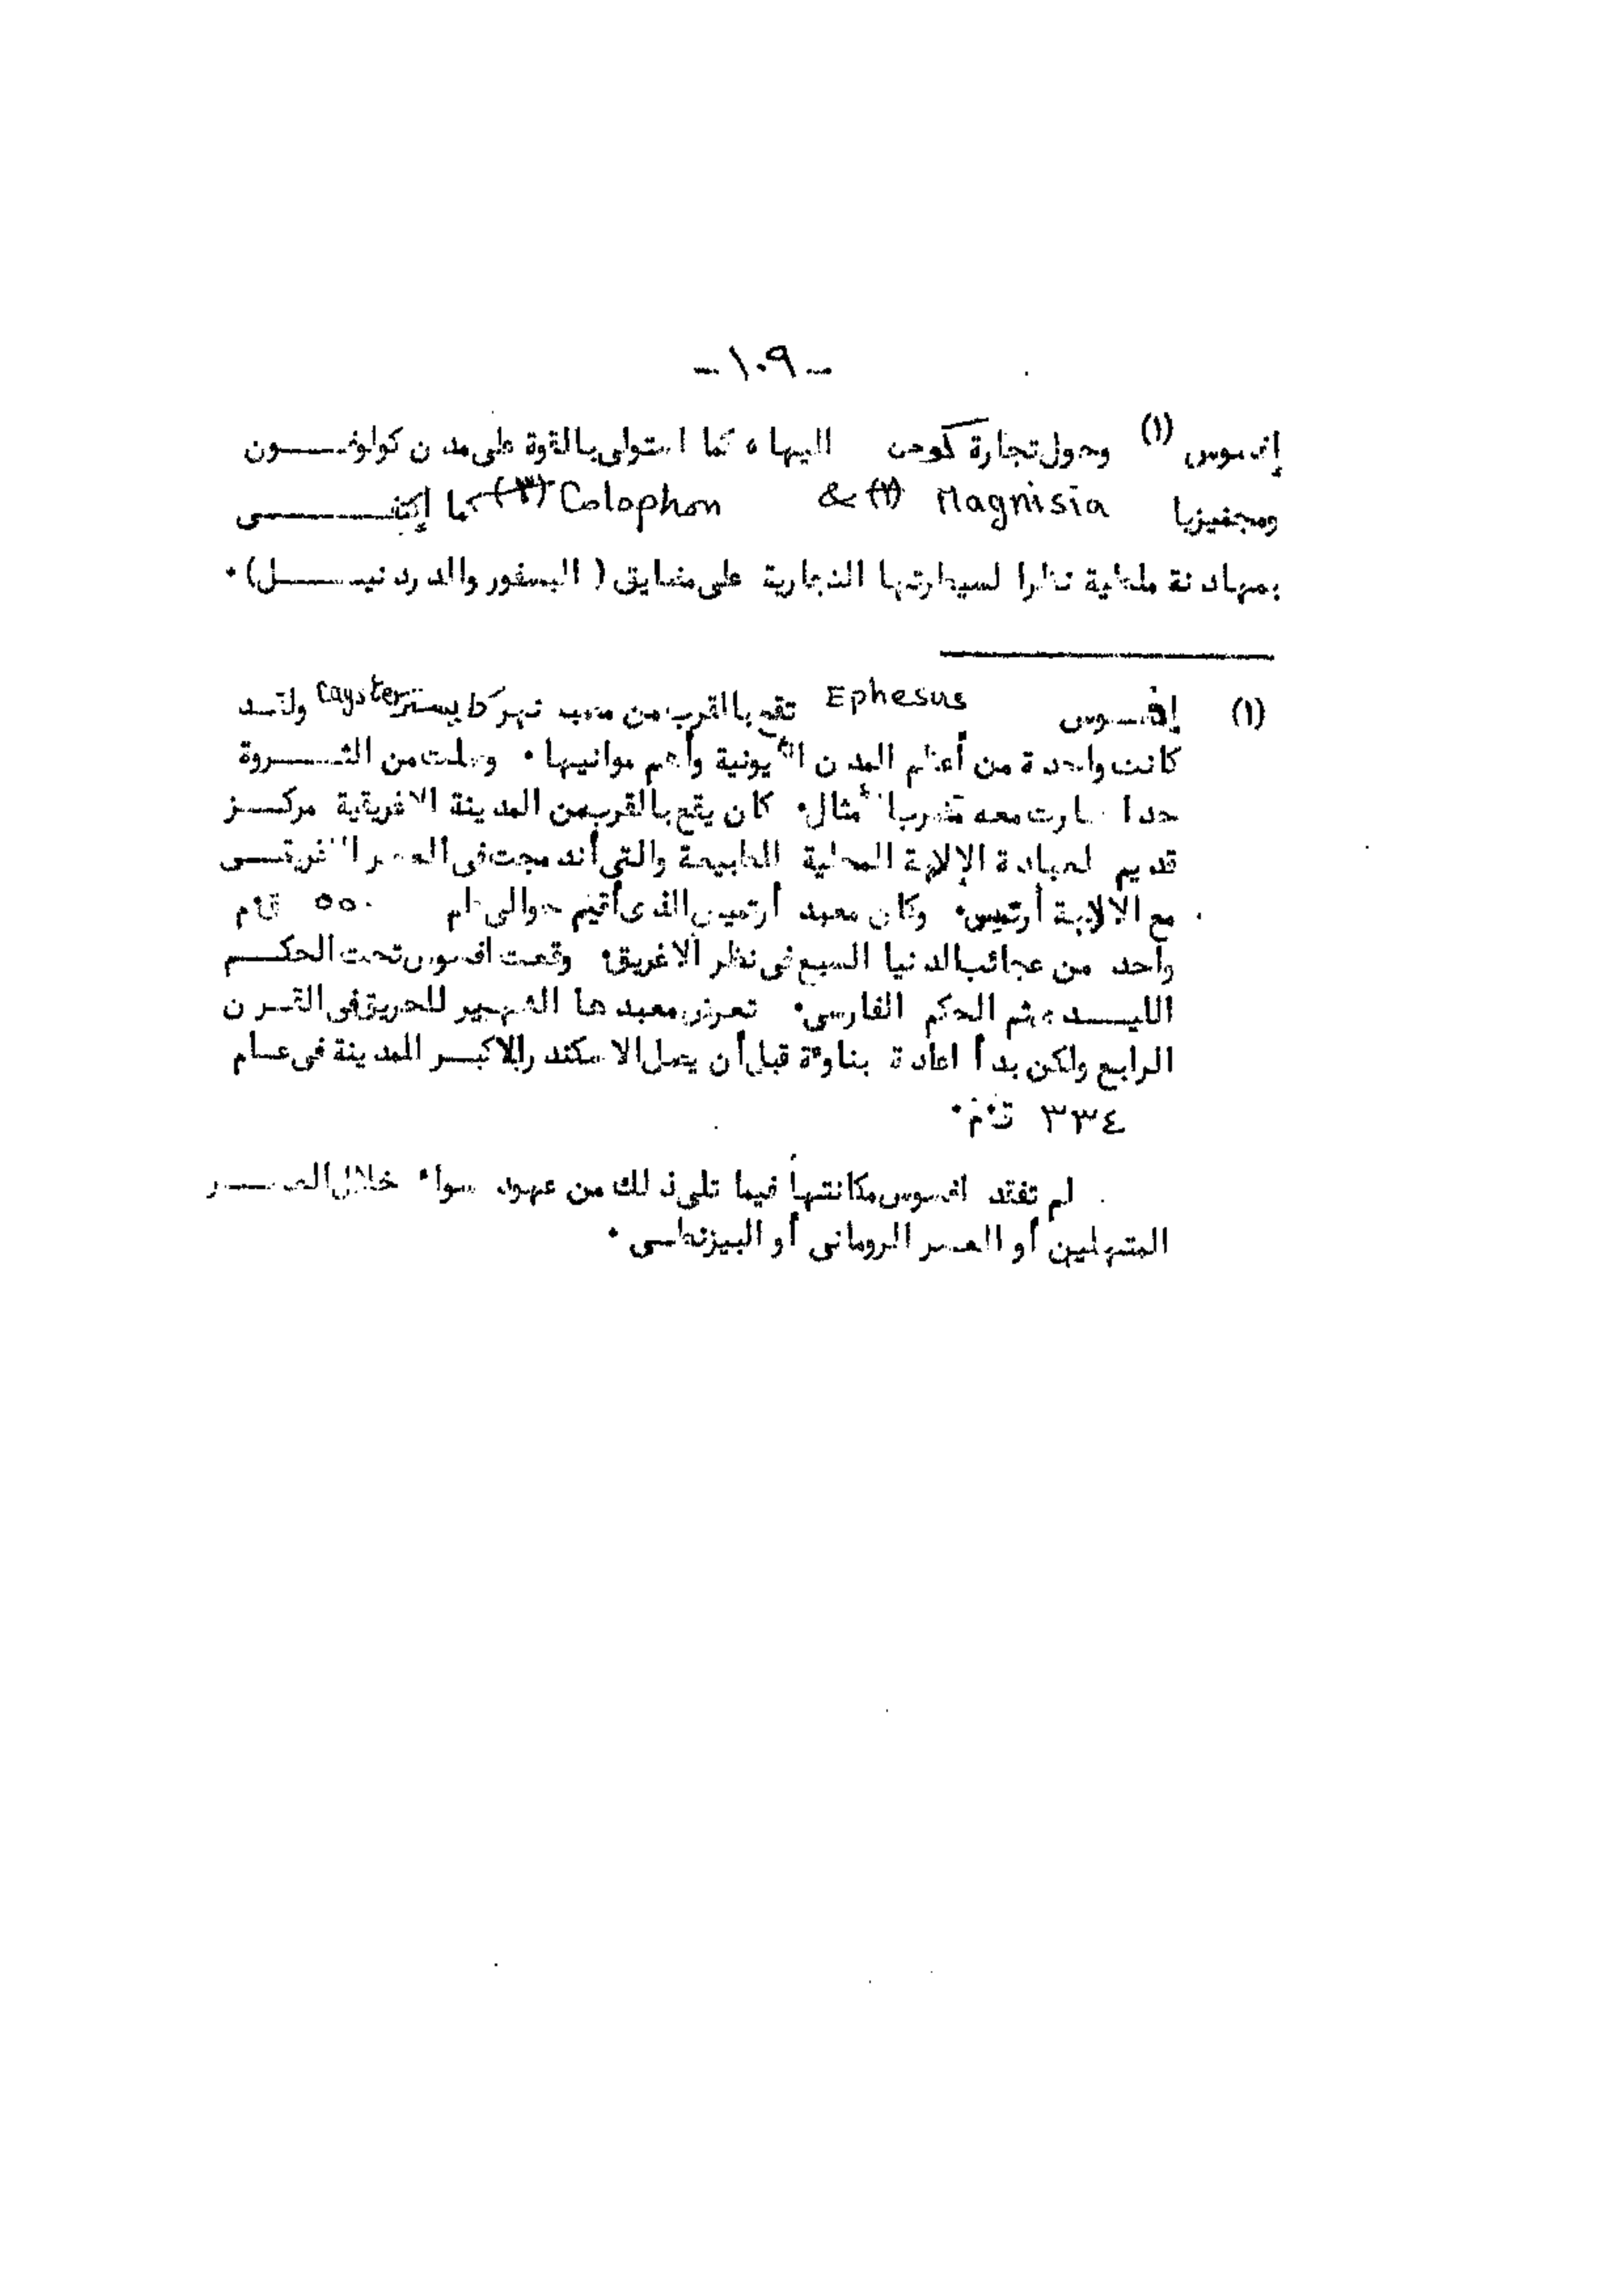 - ١٠٩ -
إفسوس (١) وحول تجارة اليها ، كما استولى بالقوة على مدن كولوفون
ومجنيزيا Magnisia (٢) & Colophon (٣) كما إكتفى
بمهادنة ملطية نظرا لسيطرتها التجارية على مضايق ( البسفور والدردنيل ) .
(١) إفسوس Ephesus تقع بالقرب من مصب نهر كايستر Cayster ولقد
كانت واحدة من أعظم المدن الأيونية وأهم موانيها . وصلت من الثروة
حدا صارت معه مضربا للأمثال . كان يقع بالقرب من المدينة الاغريقية مركز
قديم لعبادة الإلهة المحلية للطبيعة والتي أندمجت في العصر الاغريقى
مع الالهة أرتميس . وكان معبد أرتميس الذى أقيم حوالى عام ٥٥٠ ق.م
واحد من عجائب الدنيا السبع فى نظر الاغريق . وقعت افسوس تحت الحكم
الليدى ثم الحكم الفارسى . تعرض معبدها الشهير للحريق فى القرن
الرابع ولكن بدأ اعادة بناؤة قبل أن يصل الاسكندر الاكبر المدينة فى عام
٣٣٤ ق.م .
لم تفقد افسوس مكانتها فيما تلى ذلك من عهود سواء خلال العصر
أو العصر الرومانى أو البيزنطى .